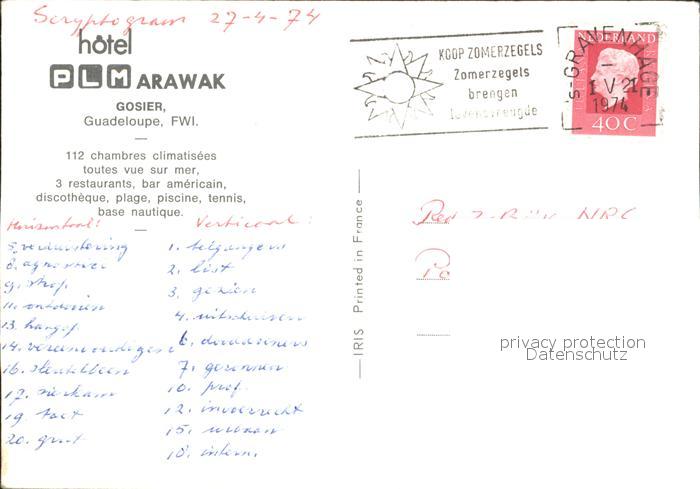 Scryptogram 27-4-74
hôtel
PLM ARAWAK
GOSIER,
Guadeloupe, FWI.
112 chambres climatisées
toutes vue sur mer,
3 restaurants, bar américain,
discothèque, plage, piscine, tennis,
base nautique.
Horizontaal:
5. verduistering
8. agnosticus
9. strop
11. ontdooien
13. hangop
14. vereenvoudigen
16. sleutelbeen
17. sierkam
19. toet
20. grut
Verticaal:
1. telgangers
2. list
3. gezien
4. uitschuiven
6.
7. geronnen
10. prof.
12. invoerrecht
15.
18. intern.
IRIS Printed in France
KOOP ZOMERZEGELS
Zomerzegels
brengen
levensvreugde
's-GRAVENHAGE
1 V 21
1974
NEDERLAND
40 C
NRC
privacy protection
Datenschutz